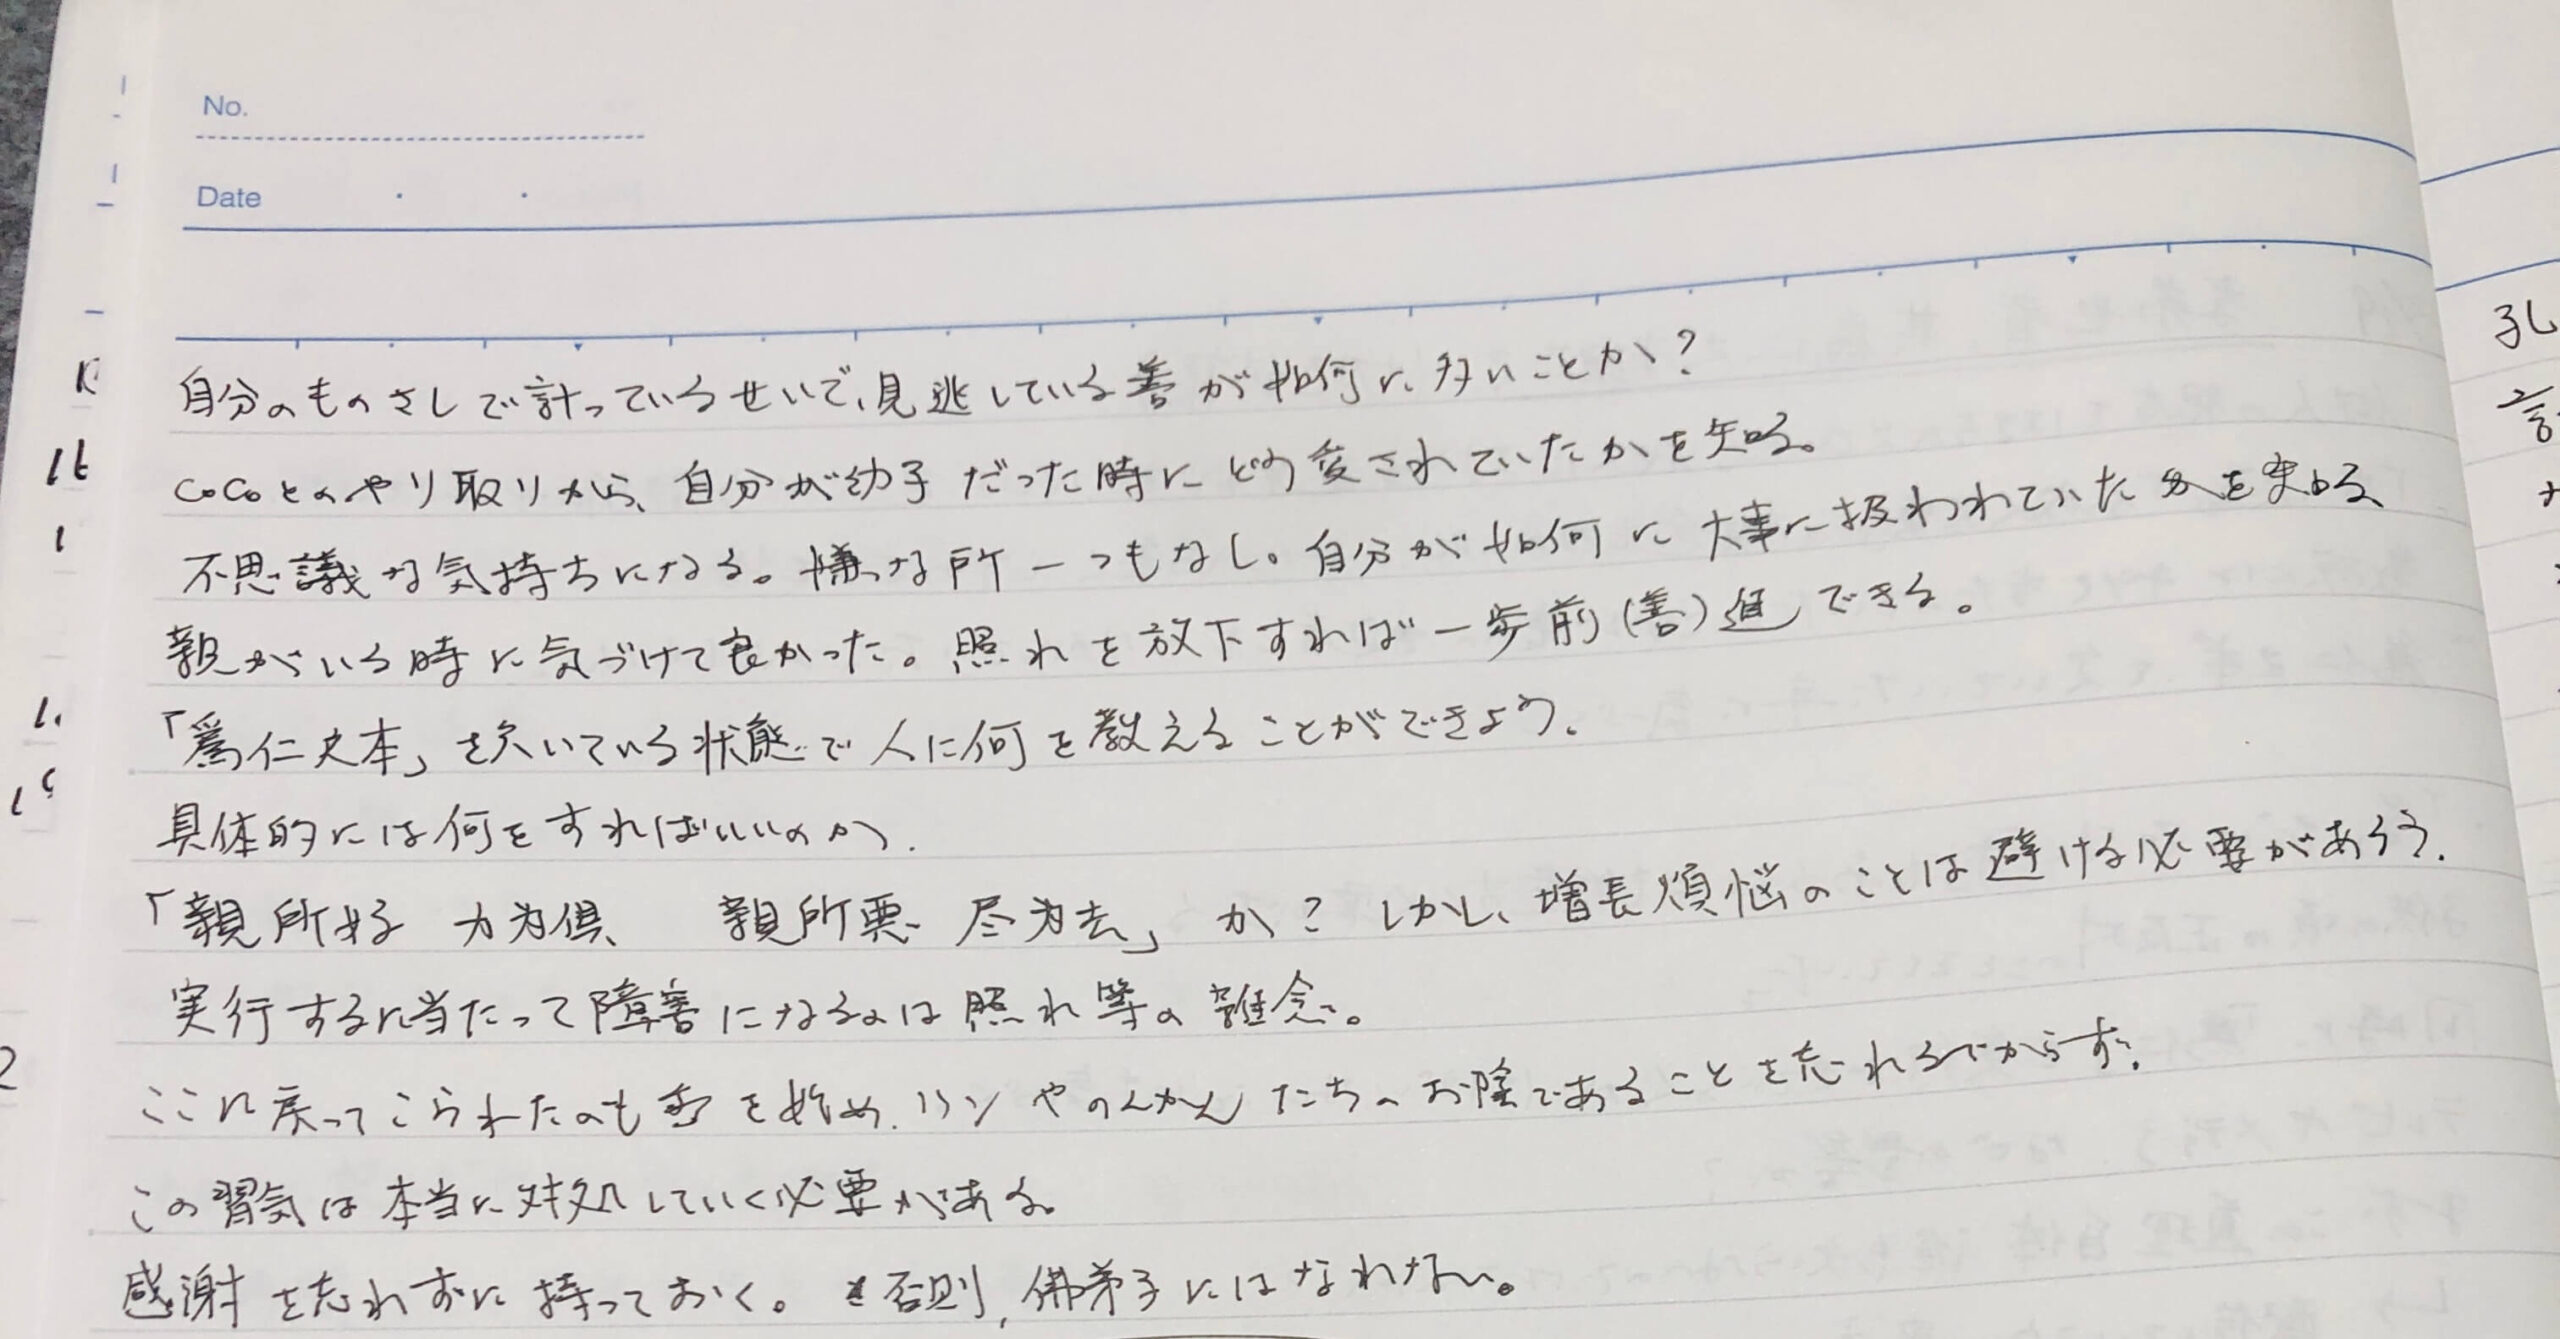 No.
Date
自分のものさしで計っているせいで、見逃している善が如何に多いことか?
CoCoとのやり取りから、自分が幼子だった時にどう愛されていたかを知る。
不思議な気持ちになる。嫌な所一つもなし。自分が如何に大事に扱われていたかを知る
親がいる時に気づけて良かった。照れを放下すれば一歩前(善)進できる。
「爲仁之本」を欠いている状態で人に何を教えることができよう.
具体的には何をすればいいのか.
「親所好 力为俱、 親所悪 尽为去」か? しかし、増長煩悩のことは避ける必要があろう.
実行するに当たって障害になるのは照れ等の雑念。
ここに戻ってこられたのも を始め、リンや たちのお陰であることを忘れるべからず.
この習気は本当に対処していく必要がある。
感謝を忘れずに持っておく。否則, 佛弟子にはなれない。
孔